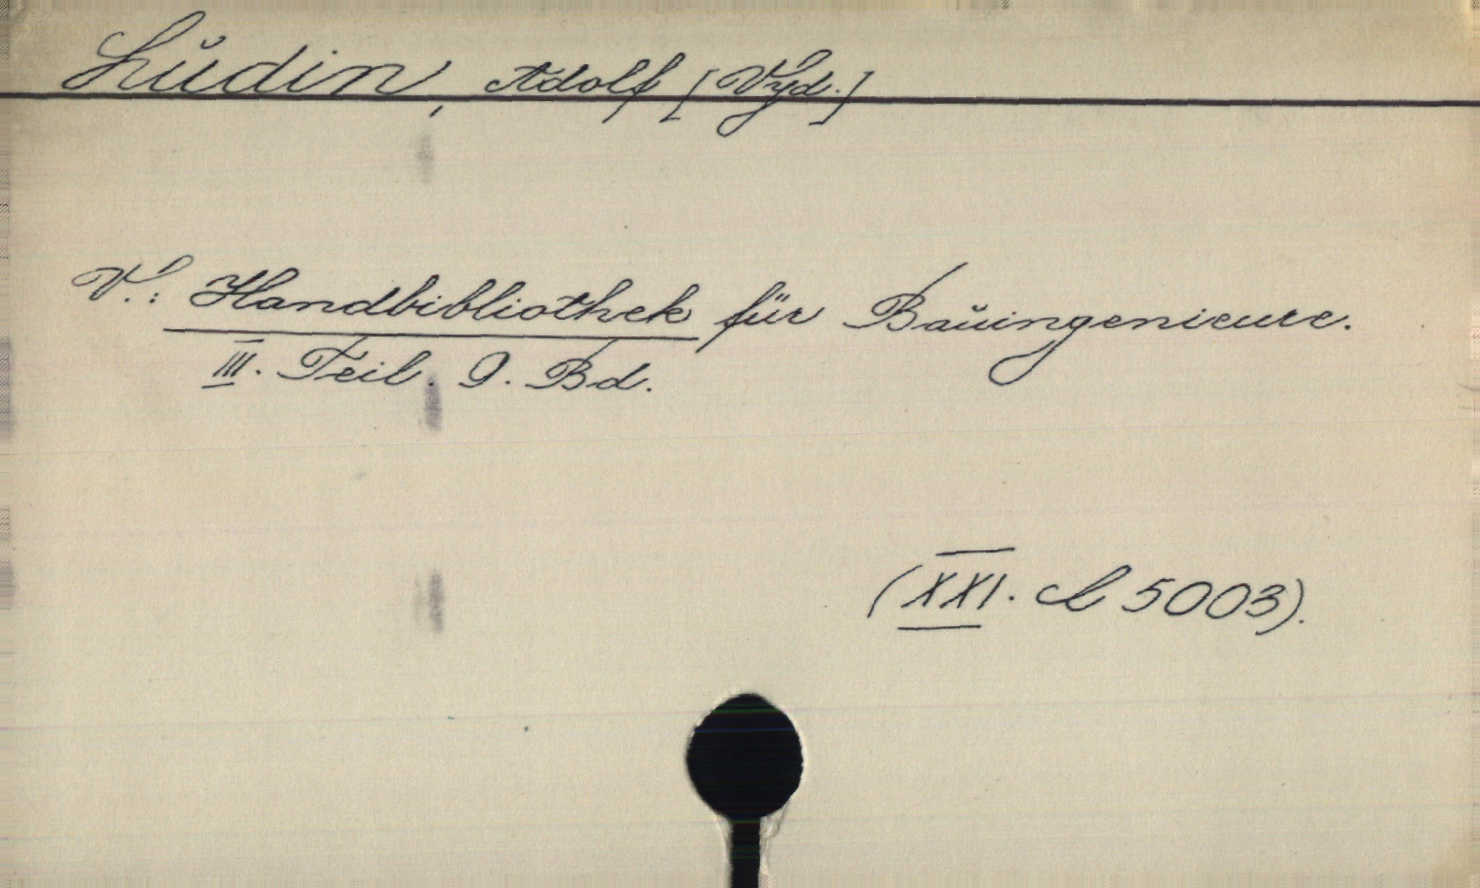 Lŭdin, Adolf [Vyd.]
V.: Handbibliothek für Baŭingenieure.
III. Teil. 9. Bd.
(XXI. L 5003).